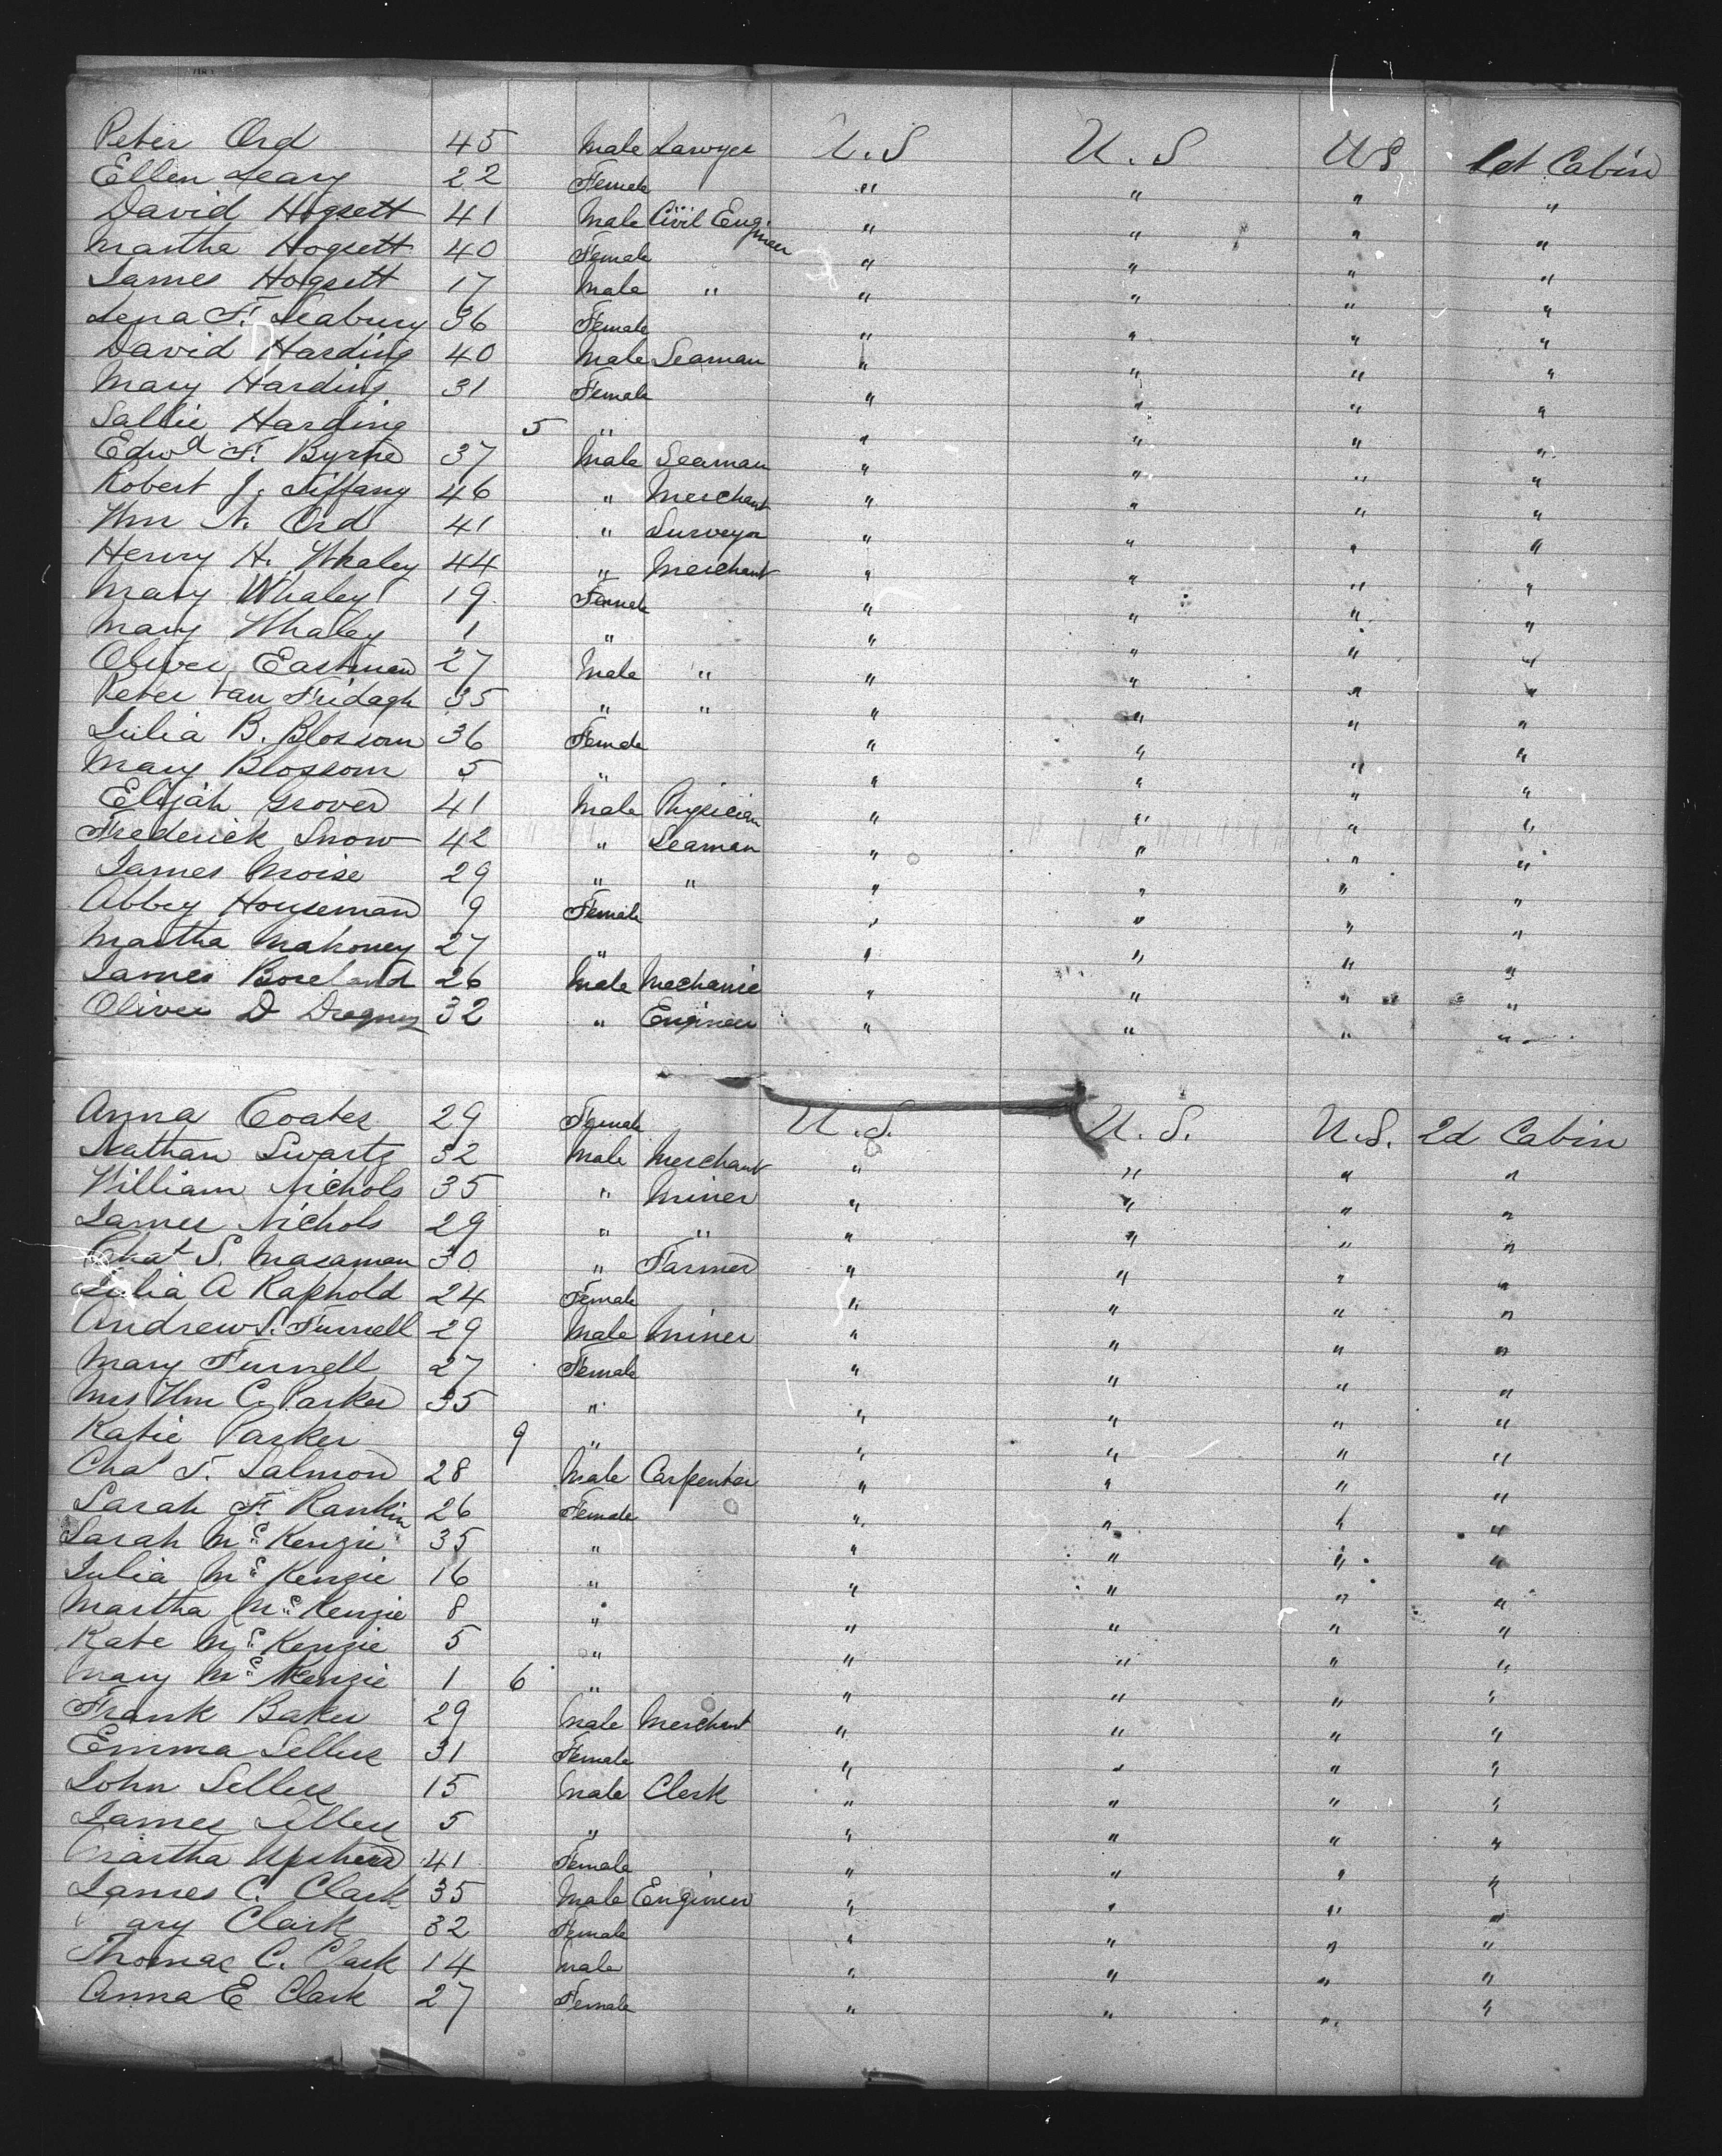 Peter Ord 45 Male Lawyer U.S U.S US 1st Cabin
Ellen Leary 22 Female " " " "
David Hogsett 41 Male Civil Engineer " " " "
Martha Hogsett 40 Female " " " "
James Hogsett 17 Male " " " " "
Lena F. Seabury 36 Female " " " "
David Harding 40 Male Seaman " " " "
Mary Harding 31 Female " " " "
Sallie Harding 5 " " " " "
Edwd F. Byrne 37 Male Seaman " " " "
Robert J. Tiffany 46 " Merchant " " " "
Wm N. Ord 41 " Surveyor " " " "
Henry H. Whaley 44 " Merchant " " " "
Mary Whaley 19 Female " " " "
Mary Whaley 1 " " " " "
Oliver Eastman 27 Male " " " " "
Peter Van 35 " " " " " "
Julia B. Blossom 36 Female " " " "
Mary Blossom 5 " " " " "
Elijah Grover 41 Male Physician " " " "
Frederick Snow 42 " Seaman " " " "
James Moise 29 " " " " " "
Abbey Houseman 9 Female " " " "
Martha Mahoney 27 " " " " "
James Boreland 26 Male Mechanic " " " "
Oliver D 32 " Engineer " " " "
Anna Coates 29 Female U.S. U.S. U.S. 2d Cabin
Nathan Swartz 32 Male Merchant " " " "
William Nichols 35 " Miner " " " "
James Nichols 29 " " " " " "
Chas S. Masaman 30 " Farmer " " " "
Julia A Raphold 24 Female " " " "
Andrew S. Furnell 29 Male Miner " " " "
Mary Furnell 27 Female " " " "
Mrs Wm C. Parker 35 " " " " "
Katie Parker 9 " " " " "
Chas T. Salmon 28 Male Carpenter " " " "
Sarah F. Rankin 26 Female " " " "
Sarah McKenzie 35 " " " " "
Julia McKenzie 16 " " " " "
Martha McKenzie 8 " " " " "
Kate McKenzie 5 " " " " "
Mary McKenzie 1 6 " " " " "
Frank Baker 29 Male Merchant " " " "
Emma Sellers 31 Female " " " "
John Sellers 15 Male Clerk " " " "
James Sellers 5 " " " " "
Martha Upsherd 41 Female " " " "
James C. Clark 35 Male Engineer " " " "
ary Clark 32 Female " " " "
Thomas C. Clark 14 Male " " " "
Anna E Clark 27 Female " " " "